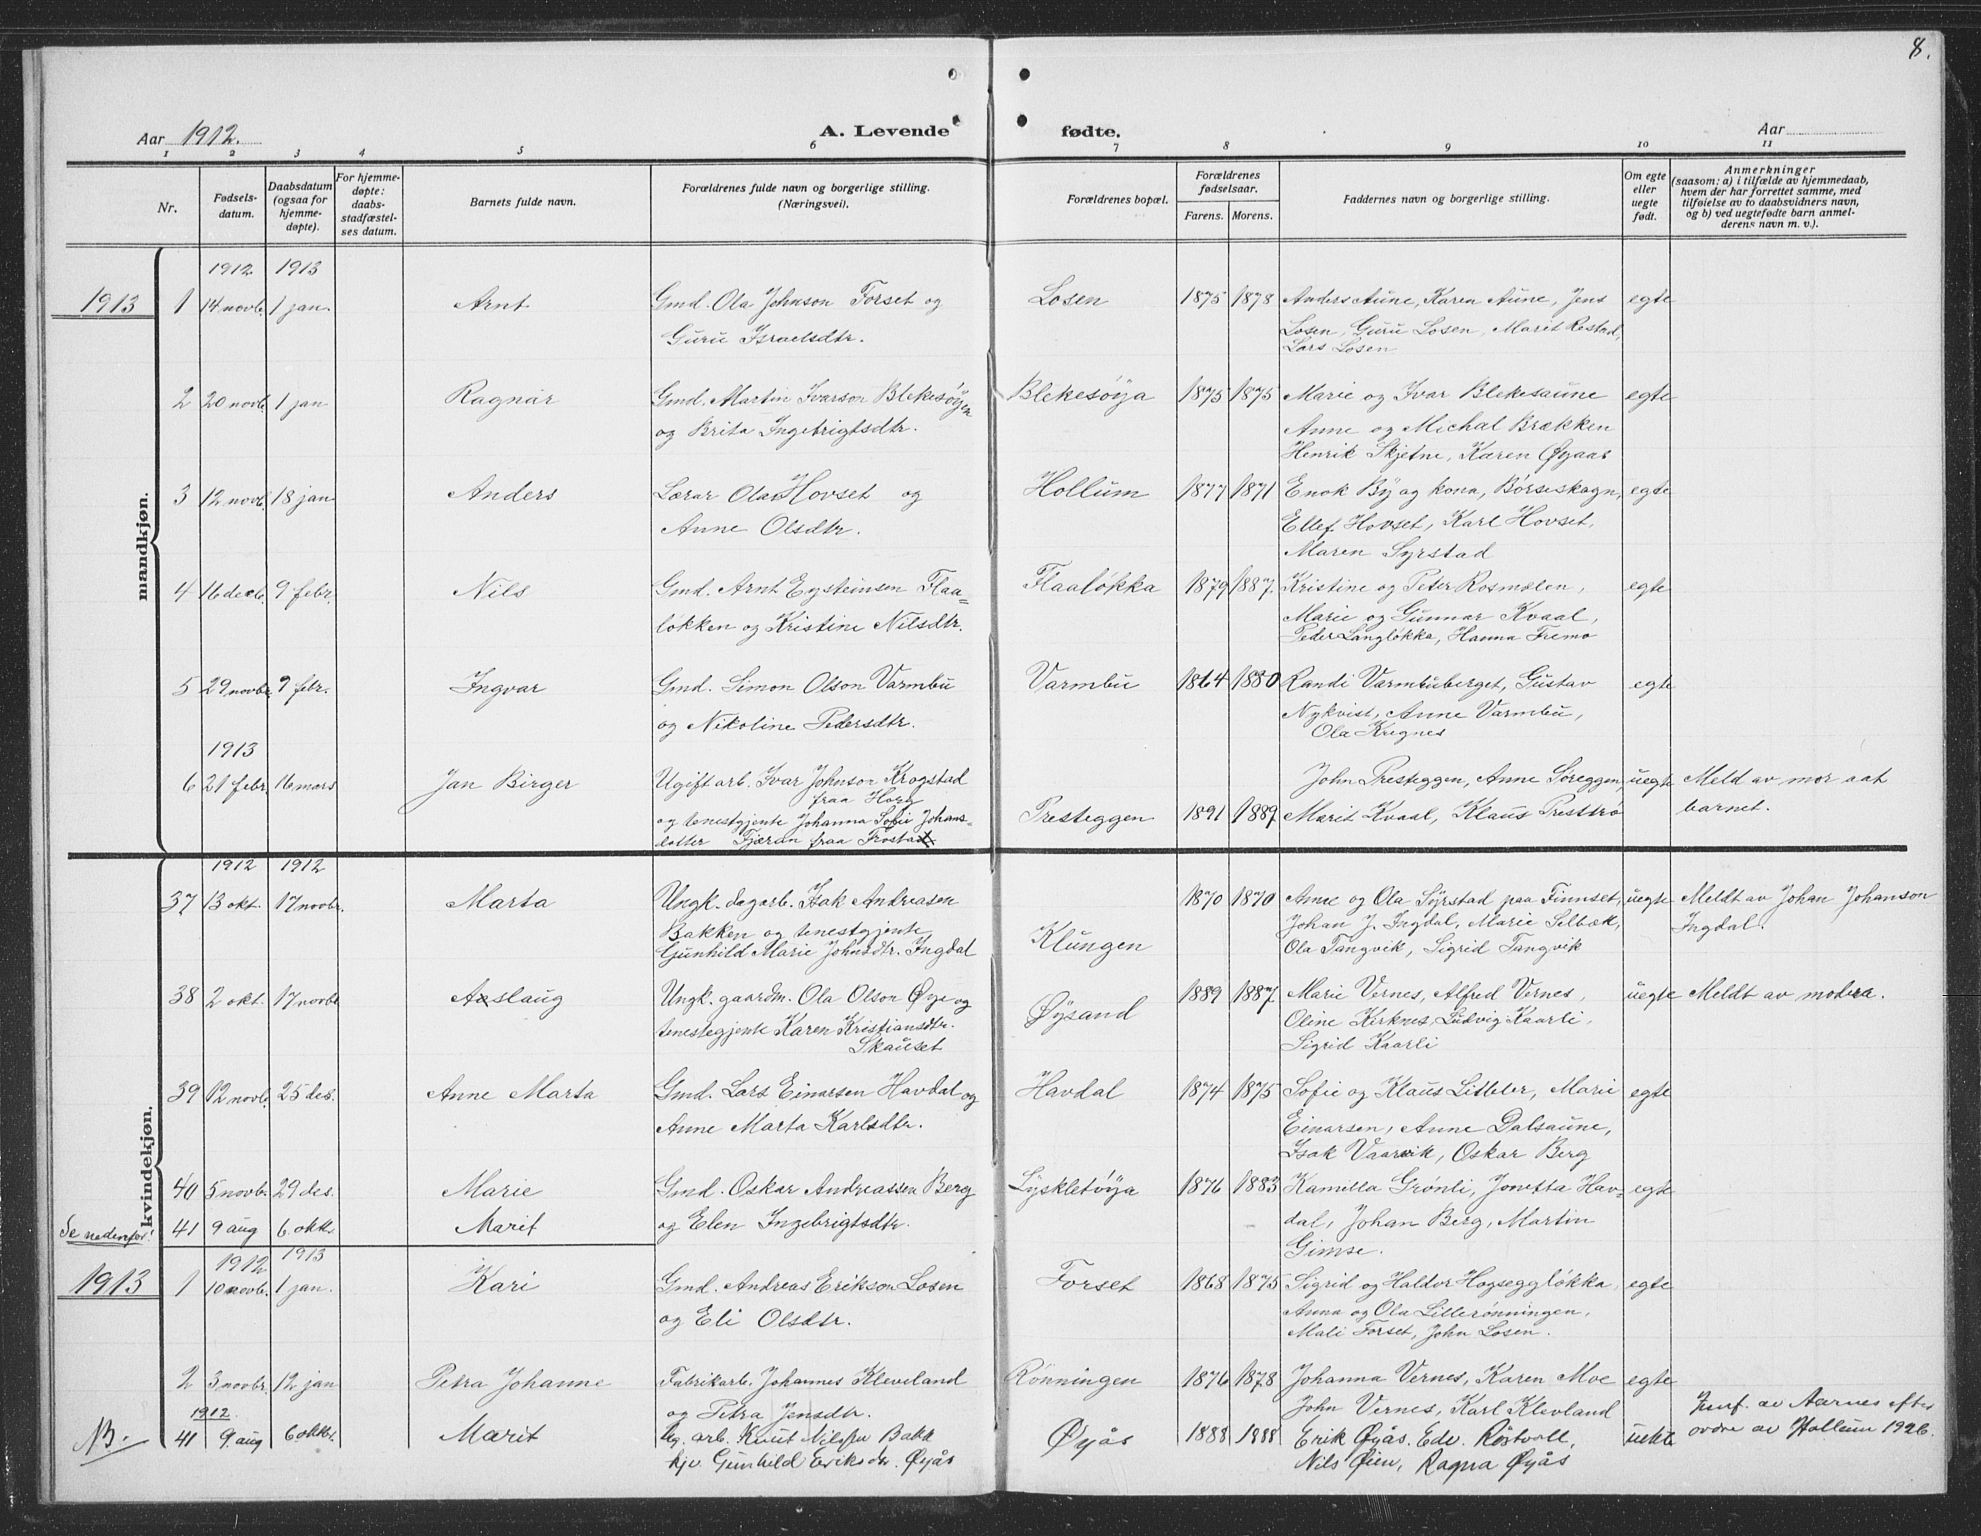 8.
Aar 1912. A. Levende fødte. Aar
1 2 3 4 5 6 7 8 9 10 11
Nr. Fødsels-datum. Daabsdatum (ogsaa for hjemme-døpte). For hjemme-døpte: daabs-stadfæstel-ses datum. Barnets fulde navn. Forældrenes fulde navn og borgerlige stilling. (Næringsvei). Forældrenes bopæl. Forældrenes fødselsaar. Farens. Morens. Faddernes navn og borgerlige stilling. Om egte eller uegte født. Anmerkninger (saasom: a) i tilfælde av hjemmedaab, hvem der har forrettet samme, med tilføielse av to daabsvidners navn, og b) ved uegtefødte barn anmel-derens navn m. v.).
mandkjøn.
1912 1913
1913 1 14 novb. 1 jan. Arnt Gmd. Ola Johnson Forset og Losen 1875 1878 Anders Aune, Karen Aune, Jens egte
Guru Israelsdtr. Losen, Guru Losen, Marit Rostad,
Lars Losen
2 20 novb. 1 jan Ragnar Gmd. Martin Ivarson Blekesøyen Blekesøya 1875 1875 Marie og Ivar Blekesaune egte
og Brita Ingebrigtsdtr. Anne og Michal Brækken
Henrik Skjetne, Karen Øyaas
3 12 novb. 18 jan Anders Lærar Ola Hovset og Hollum 1877 1871 Enok By og kona, Børseskogn, egte
Anne Olsdtr. Ellef Hovset, Karl Hovset,
Maren Syrstad
4 16 decb. 9 febr. Nils Gmd. Arnt Eysteinsen Flaa= Flaaløkka 1879 1887. Kristine og Peter Rosmælen, egte
løkken og Kristine Nilsdtr. Marie og Gunnar Kvaal,
Peder Langløkka, Hanna Fremo
5 29 novbr. 9 febr. Ingvar Gmd. Simon Olson Varmbu Varmbu 1864 1880 Randi Varmbuberget, Gustav egte
og Nikoline Pedersdtr. Nykvist, Anne Varmbu,
Ola Krignes
1913
6 21 febr. 16 mars Jan Birger Ugift arb. Ivar Johnson Krogstad John Presteggen, Anne Soreggen, uegte Meld av mor aat
fraa Horg barnet.
og tenestgjente Johanna Sofie Johans- Presteggen 1891 1889. Marit Kvaal, Klaus Presttrø
dotter Fjæran fraa Frosta
kvindekjøn.
1912 1912
37 13 okt. 17 novbr. Marta Ungk. dagarb. Isak Andreasen 1870 1870 Anne og Ola Syrstad paa Finnset, uegte Meldt av Johan Johanson
Bakken og tenestgjente Klungen Johan J. Ingdal, Marie Selbæk, Ingdal.
Gunhild Marie Johnsdtr. Ingdal Ola Tangvik, Sigrid Tangvik
38 2 okt. 17 novbr. Aslaug Ungk. gaardm. Ola Olson Øye og Øysand 1889 1887. Marie Vernes, Alfred Vernes, uegte Meldt av modera.
tenestegjente Karen Kristiansdtr. Oline Kirknes, Ludvig Kaarli,
Skauset Sigrid Kaarli
39 12 novb. 25 des. Anne Marta Gmd. Lars Einarsen Havdal og Havdal 1874 1875 Sofie og Klaus Litleler, Marie egte
Anne Marta Karlsdtr. Einarsen, Anne Dalsaune,
Isak Vaarvik, Oskar Berg
40 5 novb. 29 des. Marie Gmd. Oskar Andreassen Berg Lyskletøya 1876 1883 Kamilla Grønli, Jonetta Hav= egte
Se nedenfor! 41 9 aug 6. okt. Marit og Elen Ingebrigtsdtr. dal, Johan Berg, Martin
Gimse.
1912 1913
1913 1 10 novb. 1 jan. Kari Gmd. Andreas Erikson Losen Forset 1868 1875 Sigrid og Haldor Hogseggløkka, egte
og Eli Olsdtr. Anna og Ola Lillerønningen,
Mali Forset, John Losen.
2 3 novbr. 12 jan Petra Johanne Fabrikarb. Johannes Kleveland Rønningen 1876 1878 Johanna Vernes, Karen Moe egte
og Petra Jensdtr. John Vernes, Karl Klevland
1912.
NB. 41 9 aug 6 okt. Marit Ug. arb. Knut Nilssen Bakk Øyås 1888 1888 Erik Øyås. Edv. Røstvoll, uekte
kjv. Gunhild Eriksdr. Øyås Nils Øien, Ragna Øyås
av Aarnes efter
ordre av Hollum 1926.